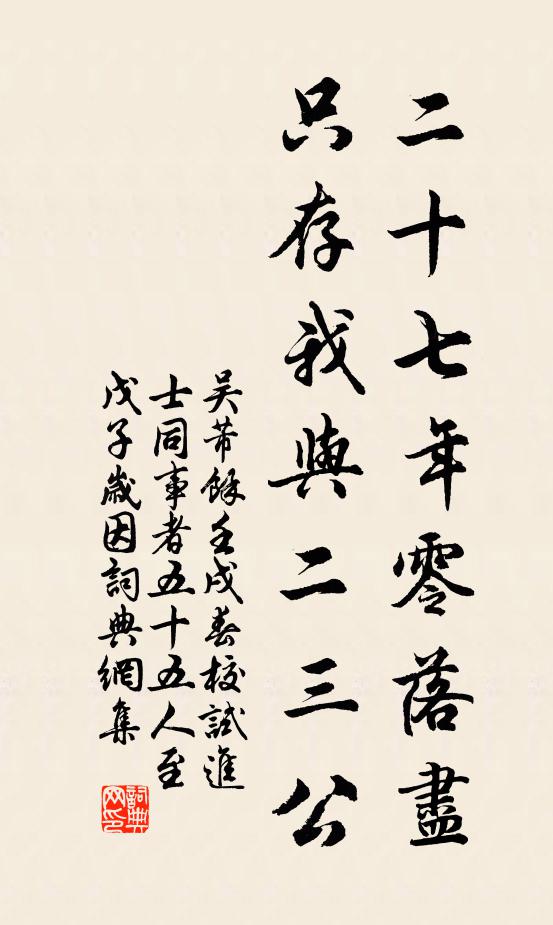 二十七年零落盡
只存我與二三公
吴芾餘壬戌春校試進
士同事者五十五人至
戊子歲因詞典網集
詞典
网印